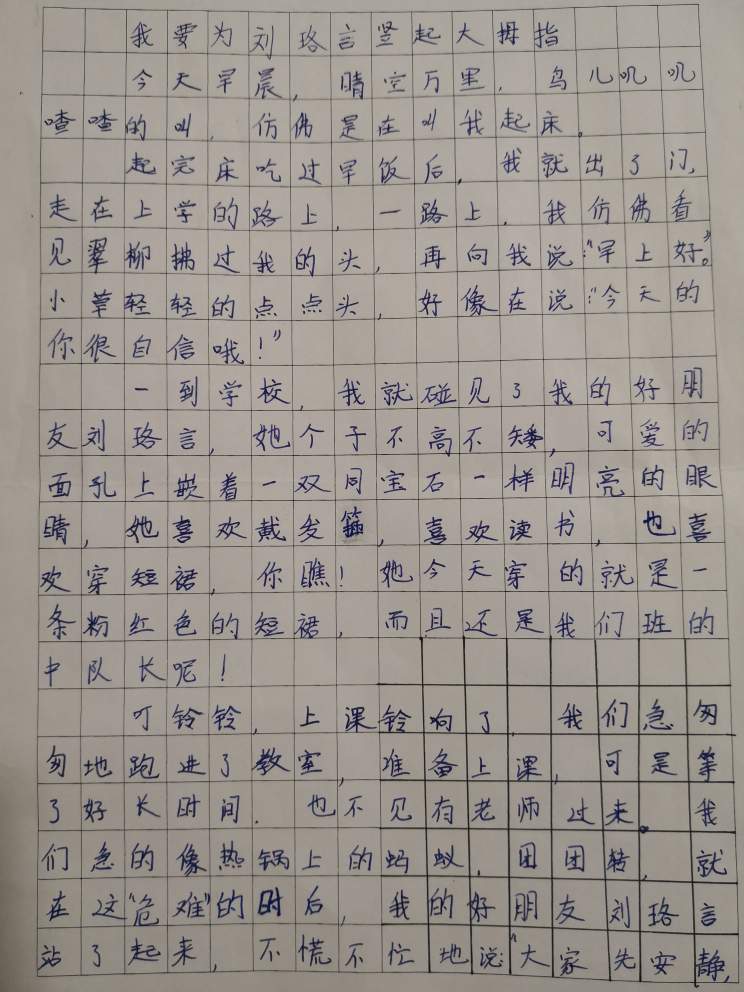 我要为刘珞言竖起大拇指
今天早晨，晴空万里，鸟儿叽叽
喳喳的叫，仿佛是在叫我起床。
起完床吃过早饭后，我就出了门，
走在上学的路上，一路上，我仿佛看
见翠柳拂过我的头，再向我说：“早上好。”
小草轻轻的点点头，好像在说：“今天的
你很自信哦！”
一到学校，我就碰见了我的好朋
友刘珞言，她个子不高不矮，可爱的
面孔上嵌着一双同宝石一样明亮的眼
睛，她喜欢戴发箍，喜欢读书，也喜
欢穿短裙，你瞧！她今天穿的就是一
条粉红色的短裙，而且还是我们班的
中队长呢！
叮铃铃，上课铃响了，我们急匆
匆地跑进了教室，准备上课，可是等
了好长时间．也不见有老师过来。我
们急的像热锅上的蚂蚁，团团转，就
在这“危难”的时后，我的好朋友刘珞言
站了起来，不慌不忙地说“大家先安静，